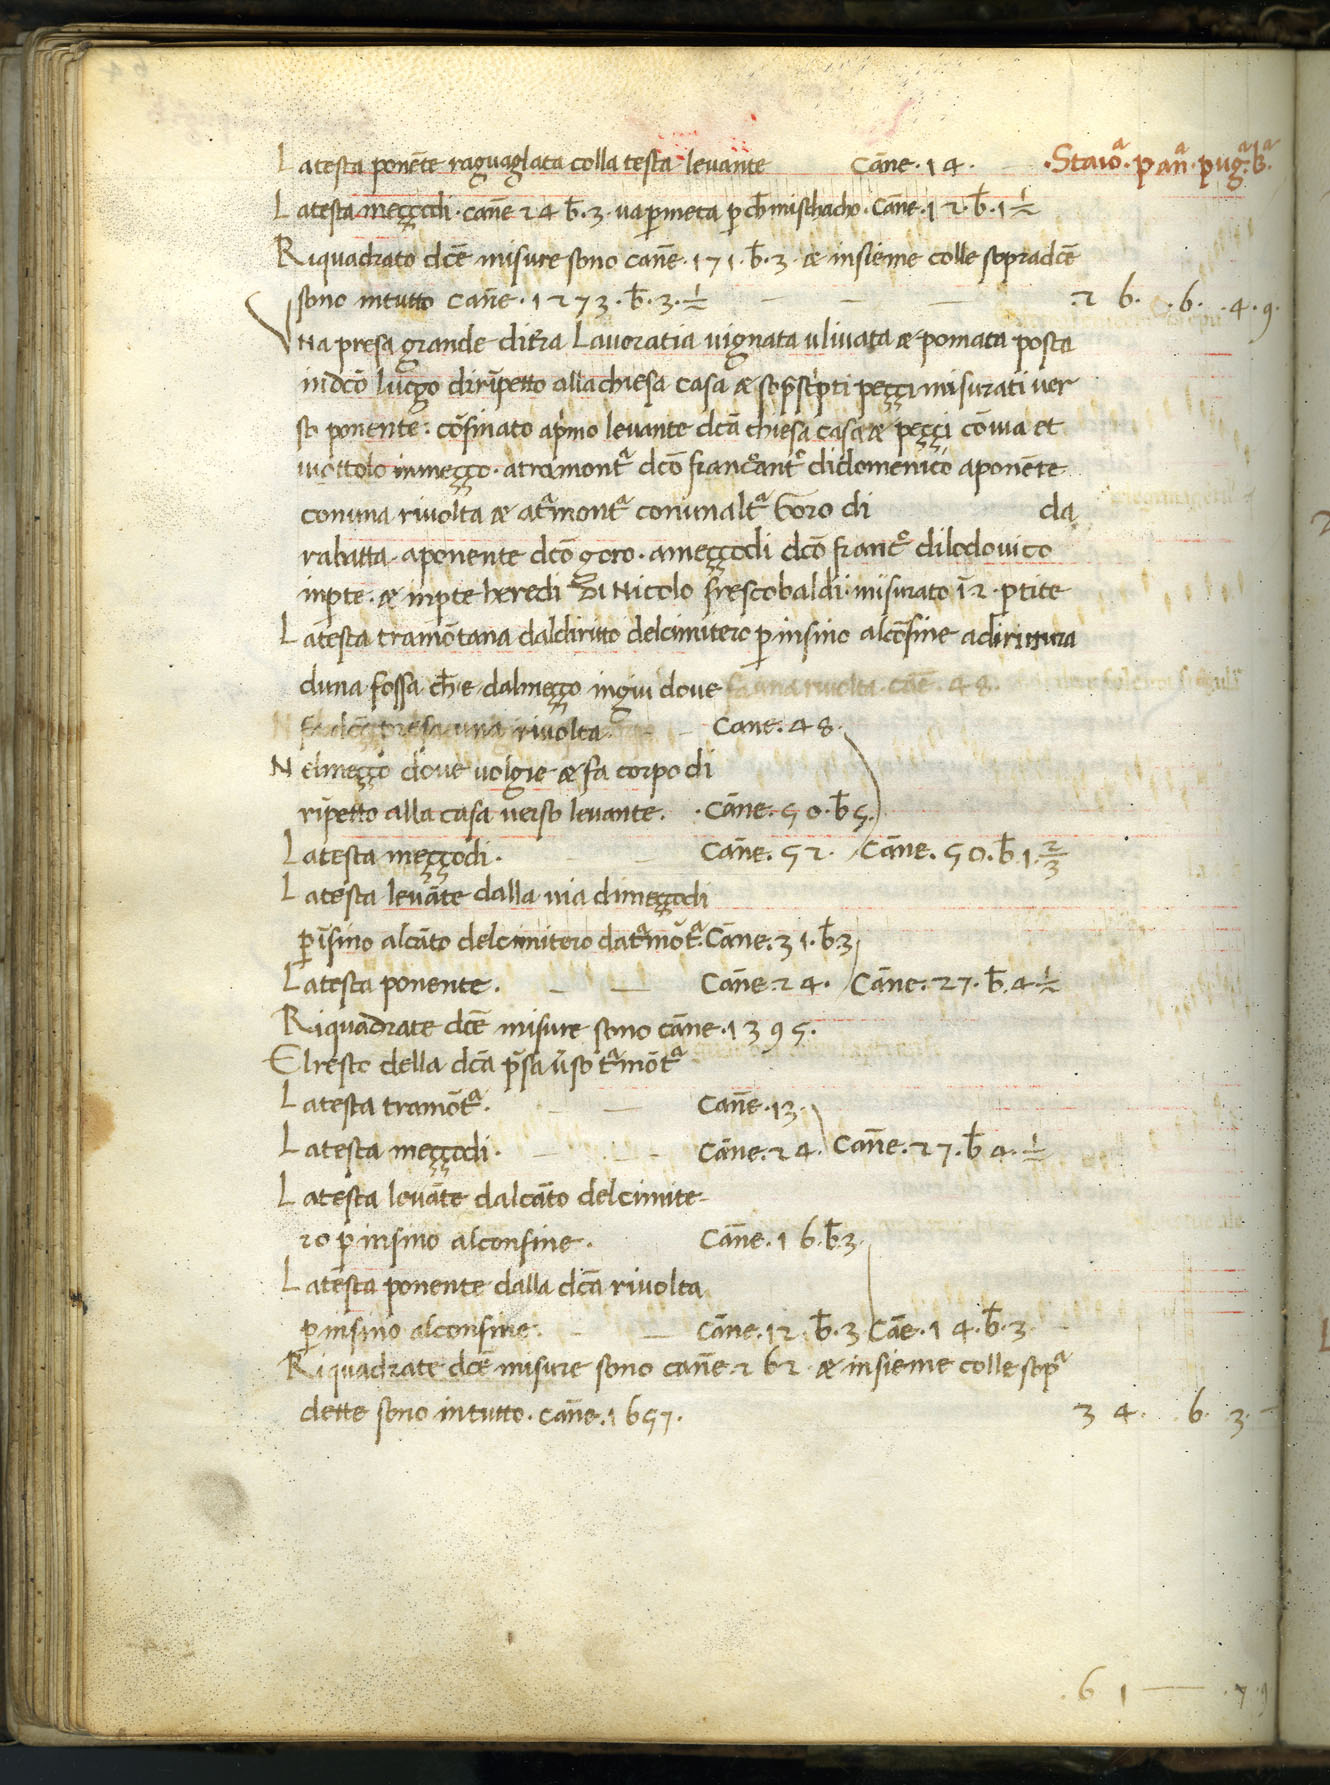 Latesta ponēte raguaglata colla testa levante canē. 14. .Staioᵃ. panᵃ. pugᵃ. b̄ᵃ.
Latesta meççodi. canē 24 b̄. 3. va p̄ meta p̄ ch̄ mischacho. canē. 12. b̄. 1 1/2
Riquadrato dcē misure sono canē. 171. b̄. 3. æ insieme colle sopradcē
sono intutto canē. 1273. b̄. 3. 1/2 — — — .26. .6. .4. 9.
Vna presa grande dit̄ra Lavoratia vignata ulivata æ pomata posta
indcō luogo dirīpetto alla chiesa casa æ sop̄sc̄pti peççi misurati ver
so ponente. cōfinato ap̄mo levante dcā chiesa casa æ peççi cōvia et
viottolo inmeçço. atramontᵃ dcō francᵒantᵒ didomenico aponēte
conuna rivolta æ atᵃmontᵃ conunaltᵃ Goro di da
rabatta. aponente dcō goro. ameççodi dcō francᵒ dilodovico
inpte. æ inpte heredi Di Nicolo frescobaldi. misurato ī 2. ptite
Latesta tramōtana daldiritto delcimitero p̄ insino alcōfine adirittura
duna fossa ch̄. e. dalmeçço ingiu dove fa una rivolta. canē. 48.
fa dcā presa una rivolta. — — Cane. 48.
Nelmeçço dove volgie æ fa corpo di
rīpetto alla casa verso levante. .Cāne. 50. b̄ 5.
Latesta meççodi. — Canē. 52. Cāne. 50. b̄. 1. 2/3
Latesta levāte dalla via dimeççodi
p̄ īsino alcāto delcimitero datᵃmōtᵃ Cāne. 31. b̄ 3
Latesta ponente. — — Canē. 24. Cāne. 27. b̄. 4. 1/2
Riquadrate dcē misure sono cāne. 1395.
Elresto della dcā p̄sa v̄so tᵃmōtᵃ
Latesta tramōtᵃ. — Canē. 13.
Latesta meççodi. — — Cāne. 24. Canē. 27. b̄ 4. 1/2
Latesta levāte dalcāto delcimite-
ro p̄ insino alconfine. Canē. 16. b̄. 3.
Latesta ponente dalla dcā rivolta
p̄ insino alconfine. — — Cāne. 12. b̄. 3 Cāe. 14. b̄. 3.
Riquadrate dcē misure sono canē. 262. æ insieme colle sopᵃ
dette sono intutto. canē. 1657. 34. 6. 3. —
.61 — .7.9